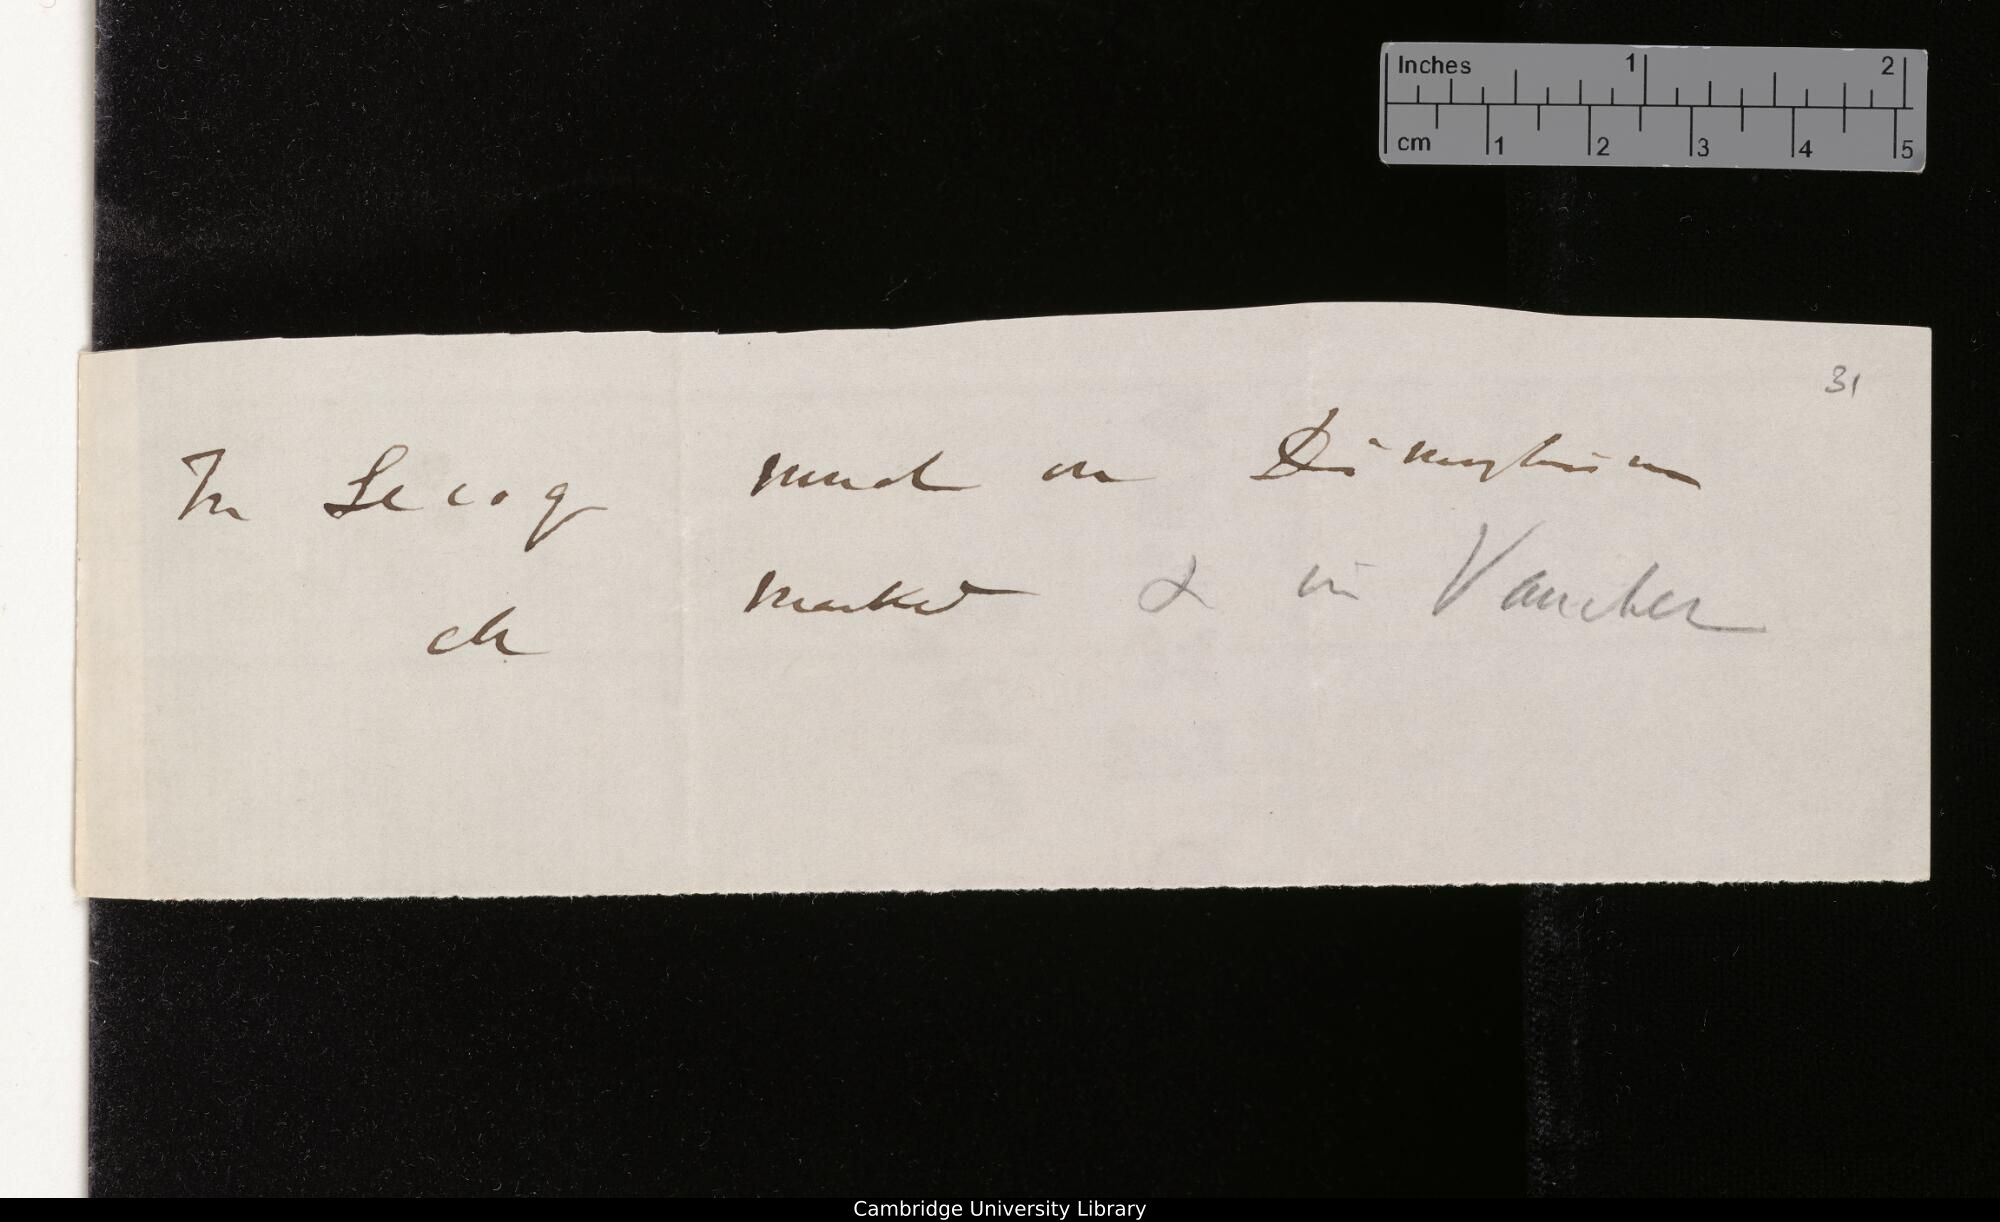 Inches 1 2
cm 1 2 3 4 5
31
In Lecoq much on Dimorphism
ch marked & in Vaucher
Cambridge University Library